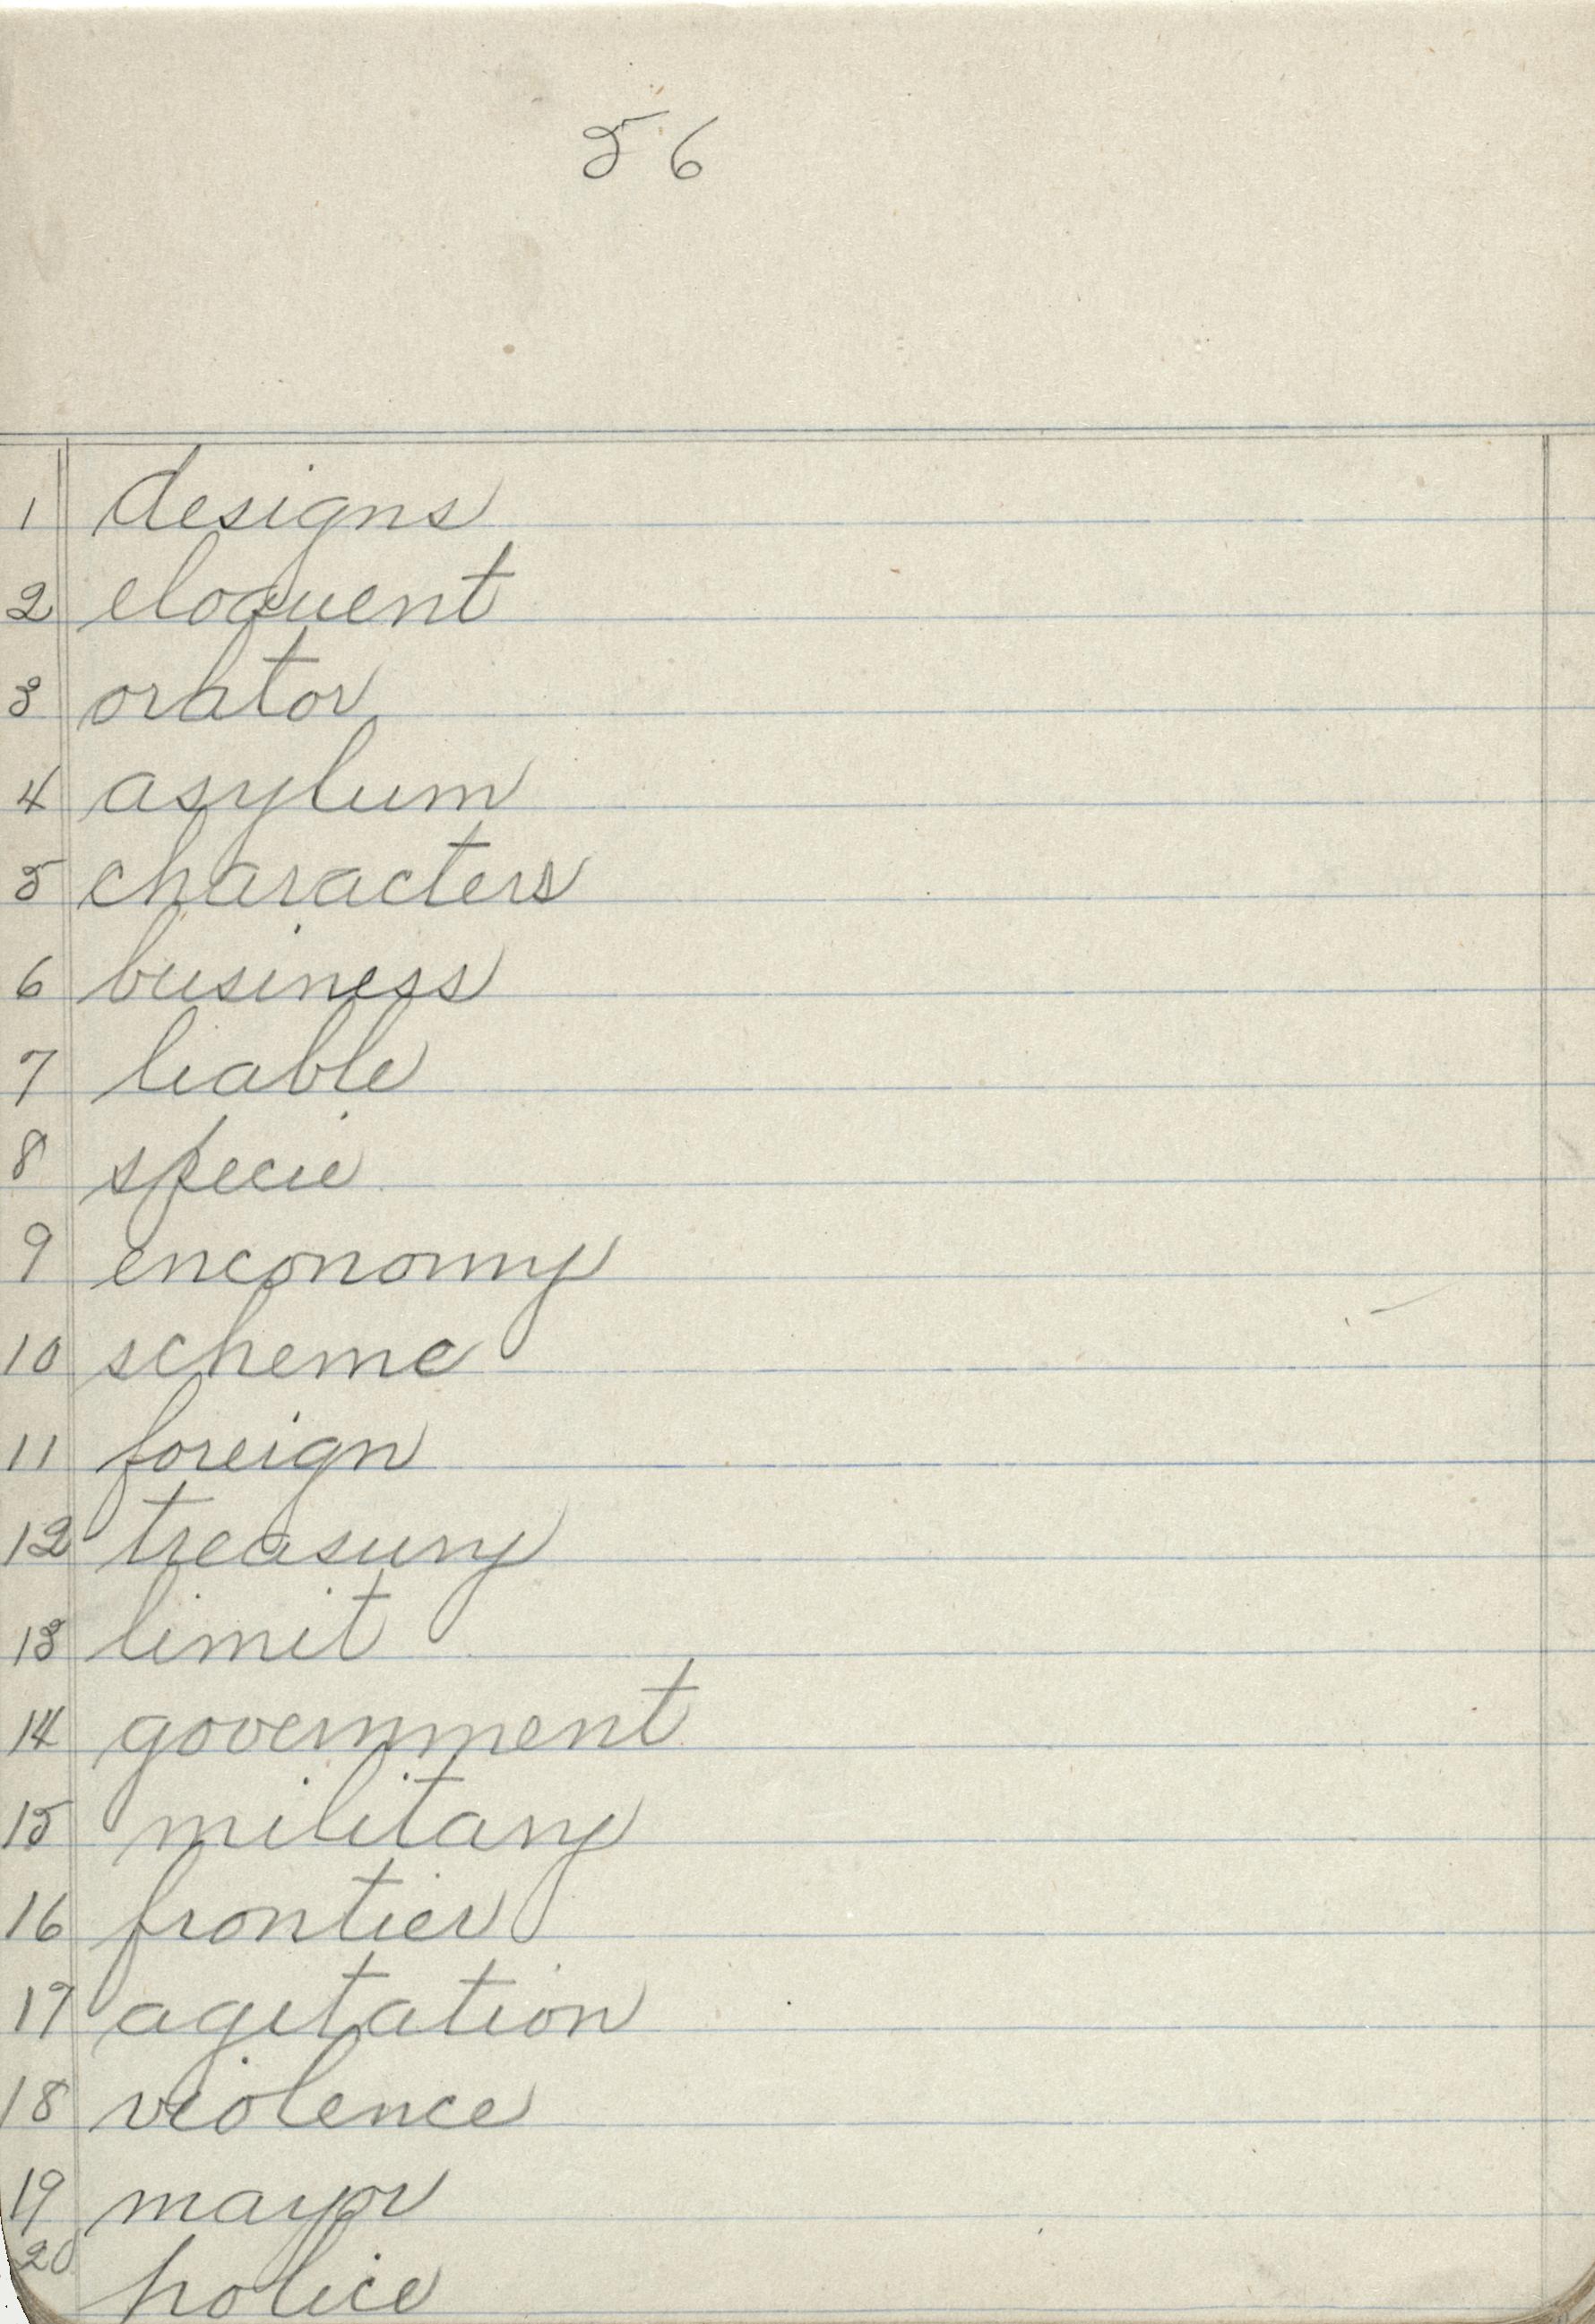 56
1 designs
2 eloquent
3 orator
4 asylum
5 characters
6 business
7 liable
8 specie
9 enconomy
10 scheme
11 foreign
12 treasury
13 limit
14 government
15 military
16 frontier
17 agitation
18 violence
19 mayor
20 police